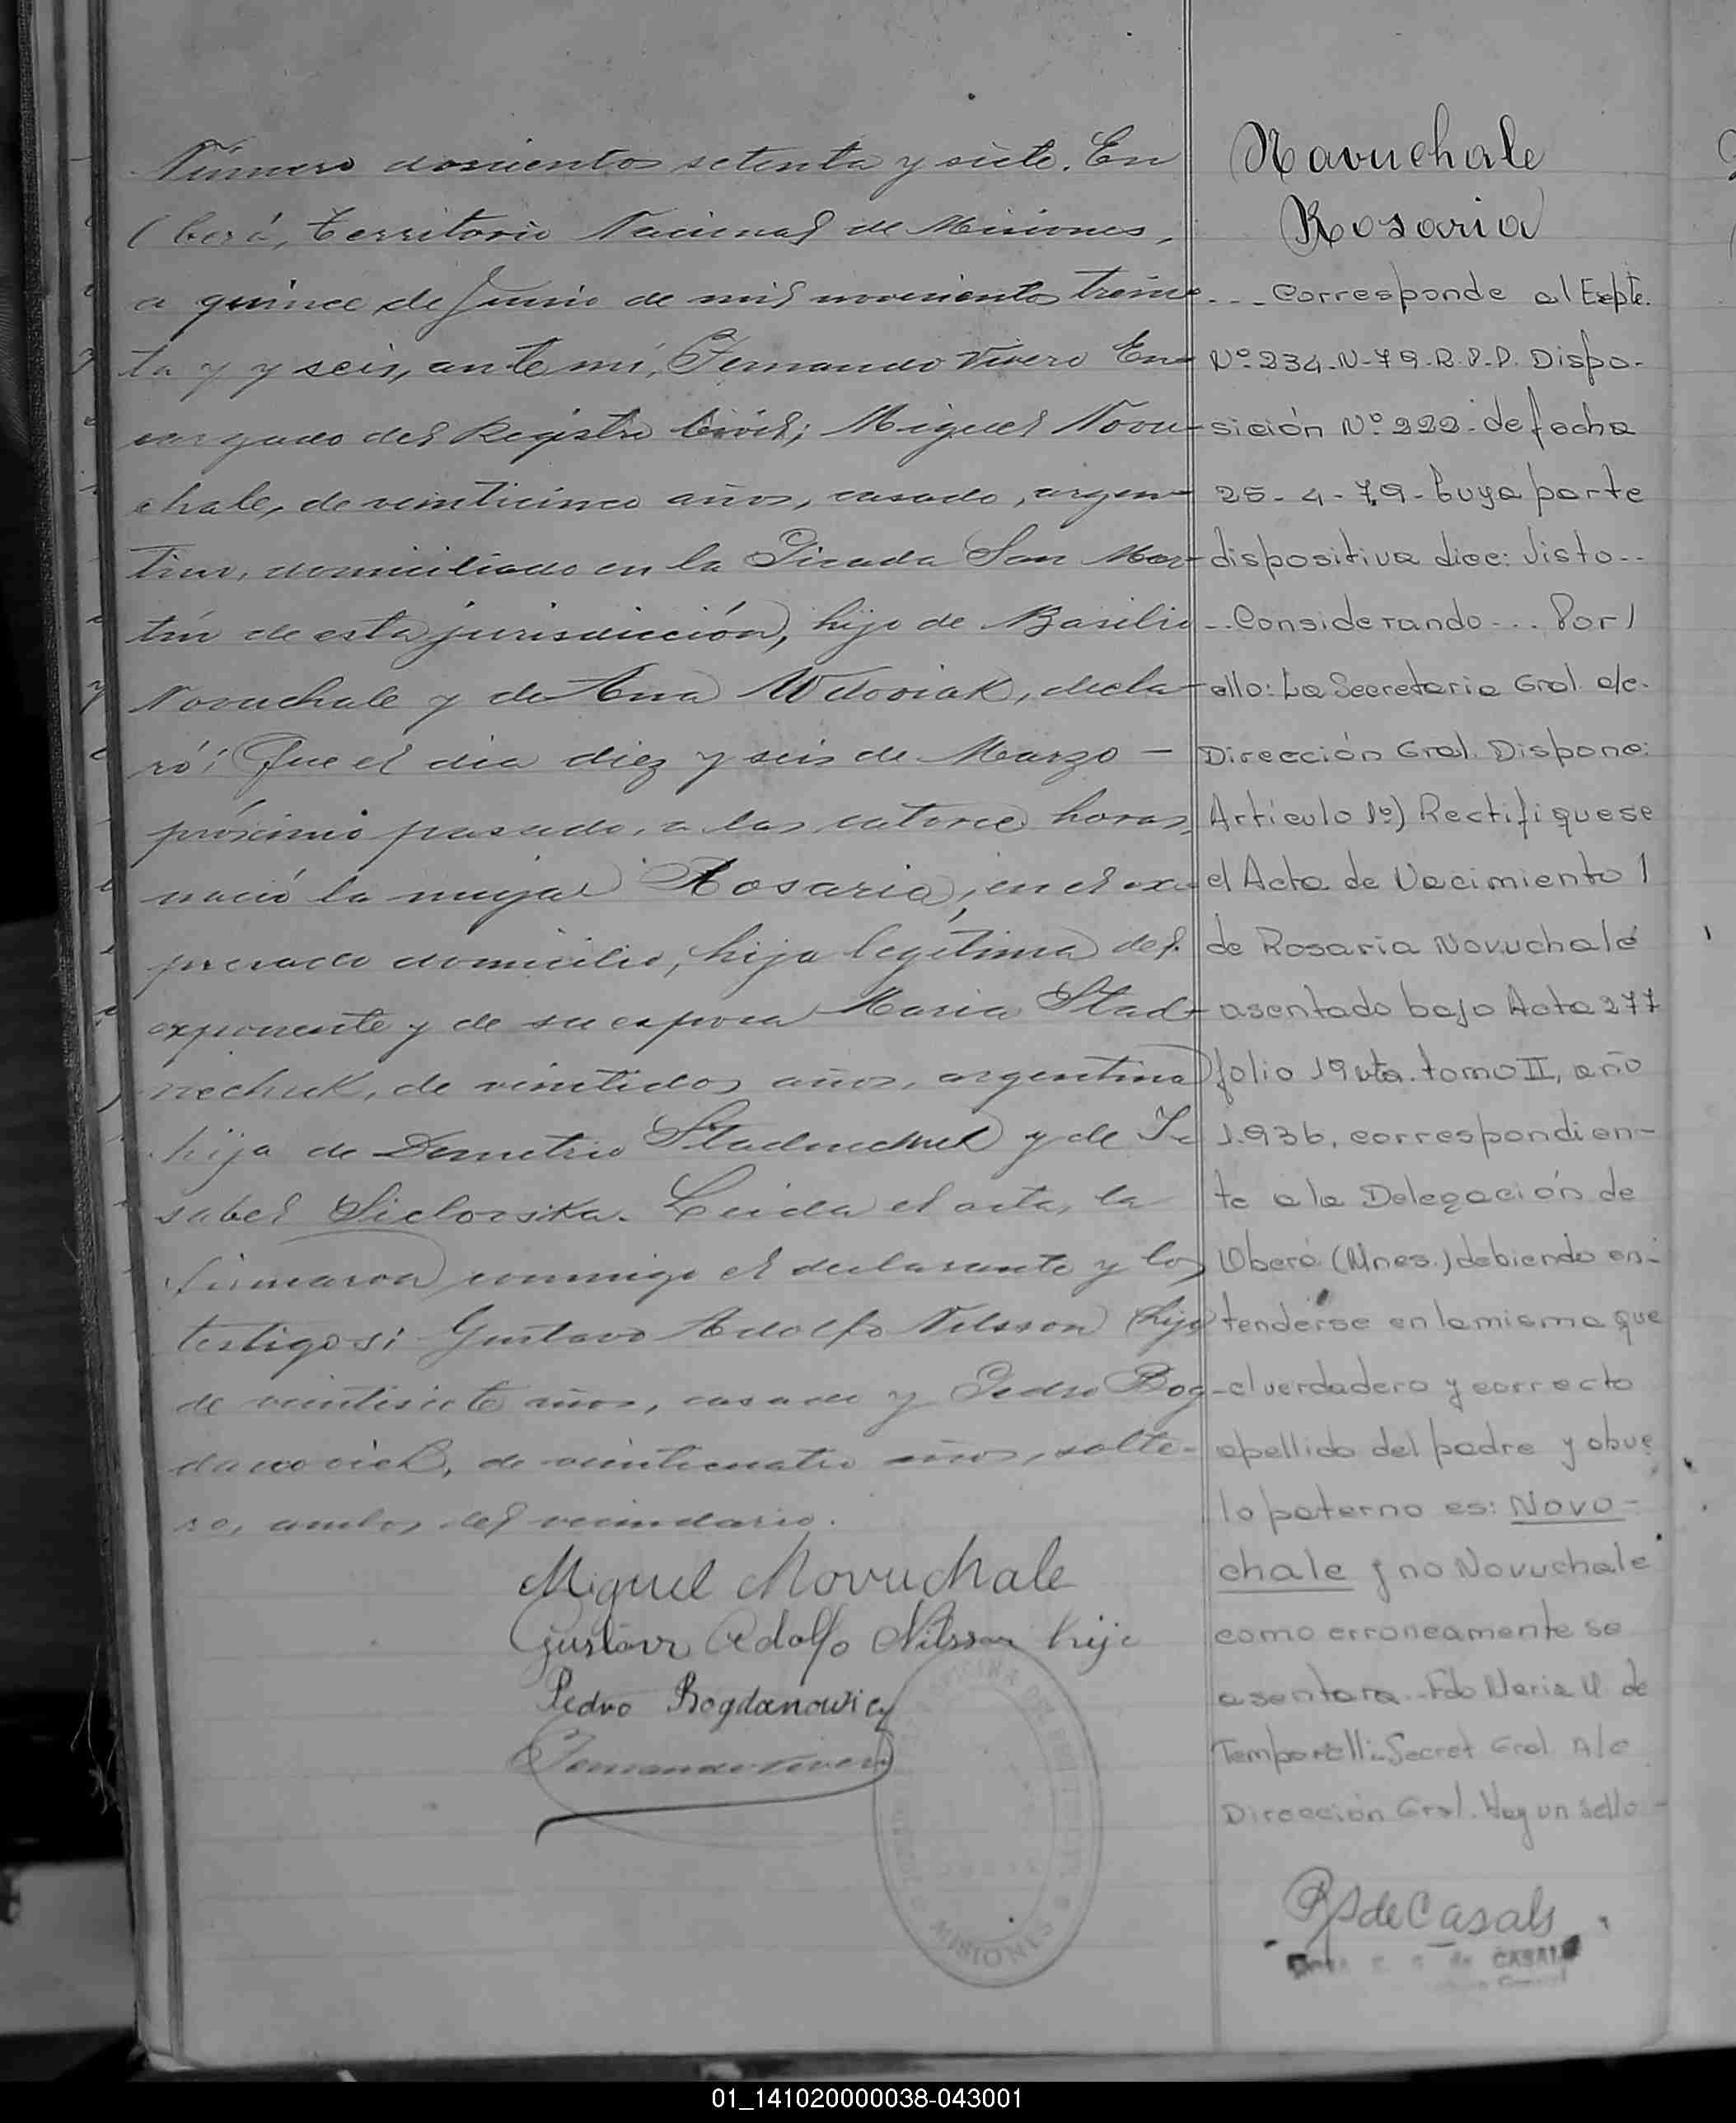 Número doscientos setenta y siete. En
Oberá, Territorio Nacional de Misiones,
a quince de Junio de mil novecientos trein-
ta y y seis, ante mí, Fernando Vivero En-
cargado del Registro Civil; Miguel Novu-
chale, de veinticinco años, casado, argen-
tino, domiciliado en la Picada San Mar-
tín de esta jurisdicción, hijo de Basilio
Novuchale y de Ana Wdoviak, decla-
ró: Que el día diez y seis de Marzo —
próximo pasado, a las catorce horas,
nació la mujer Rosaria, en el ex-
presado domicilio, hija legítima del
exponente y de su esposa María Stad-
nechuk, de veintidos años, argentina
hija de Demetrio Stadnechuk y de I-
sabel Siclorska. Leida el acta, la
firmaron conmigo el declarante y los
testigos: Gustavo Adolfo Nilsson (hijo)
de veintisiete años, casado y Pedro Bog-
danovich, de veinticuatro años, solte-
ro, ambos del vecindario.
Miguel Novuchale
Gustavo Adolfo Nilsson hijo
Pedro Bogdanowicz
Fernando Vivero
MISIONES
Navuchale
Rosaria
... Corresponde al Expte.
Nº 234-N-79-R.P.P. Dispo-
sición Nº 222- de fecha
25-4-79- Cuya parte
dispositiva dice: Visto..
..Considerando... Por
ello: La Secretaria Gral. a/c.
Dirección Gral. Dispone:
Artículo 1º) Rectifiquese
el Acta de Nacimiento
de Rosaria Novuchale
asentado bajo Acta 277
folio 19 vta. tomo II, año
1.936, correspondien-
te a la Delegación de
Oberá (Mnes.) debiendo en-
tenderse en la misma que
el verdadero y correcto
apellido del padre y abue
lo paterno es: Novo-
chale y no Novuchale
como erroneamente se
asentara.. Fdo Maria U. de
Temporelli- Secret Gral A/c
Dirección Gral. Hay un sello-
de Casals
de CASALS
01_141020000038-043001